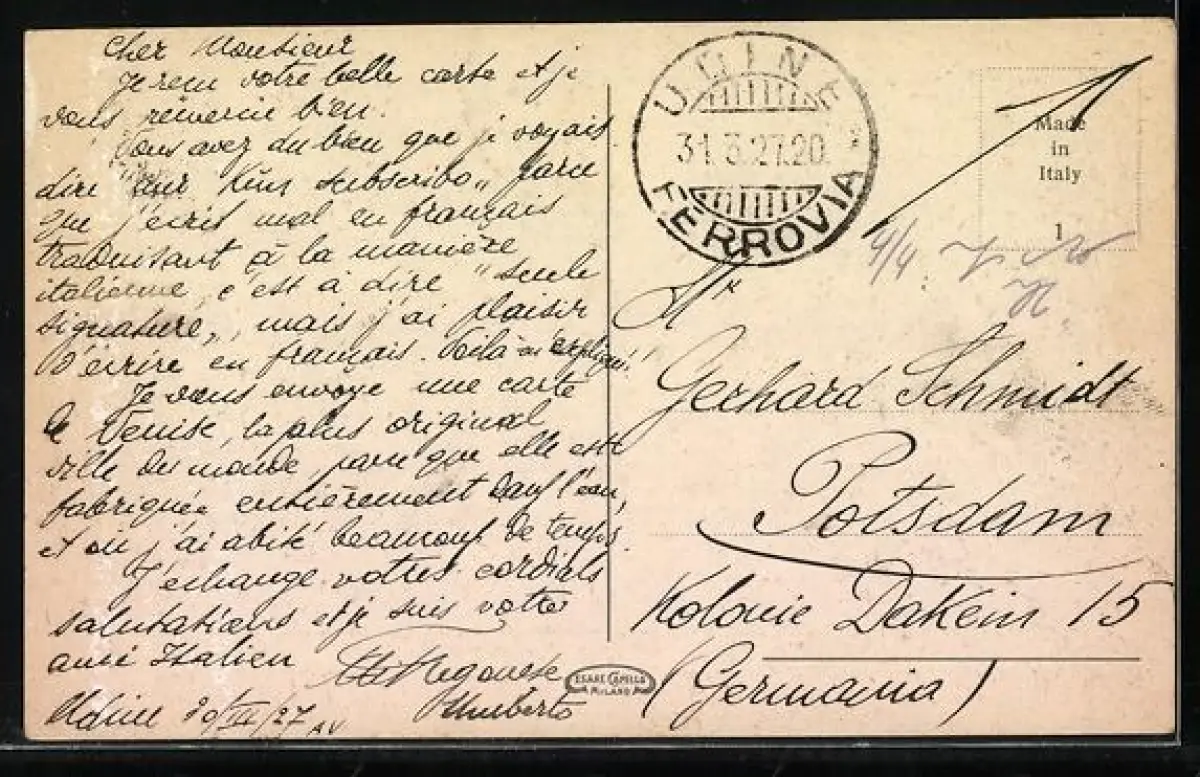 Cher Monsieur
Je reçu votre belle carte et je
vous remercie bien.
Vous avez du bien que je voyais
dire sur "Kün subscribo„ parce
que j'ecris mal en français
traduisant à la manière
italienne, c'est à dire "seule
signature„, mais j'ai plaisir
d'écrire en français. Voilà
Je vous envoye une carte
de Venise, la plus original
ville du monde, parce que elle est
fabriquée entièrement dans l'eau,
et où j'ai abité beaucoup de temps.
J'echange vottres cordials
salutations et je suis votre
ami Italien
Umberto
Udine 30/III/27
UDINE
31.3.27.20
FERROVIA
Made
in
Italy
1
4/4
Mr
Gerhard Schmidt
Potsdam
Kolonie Dakein 15
(Germania)
CESARE CAPELLO
MILANO